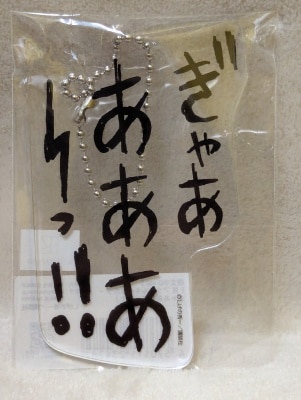 ぎゃあ
あああ
りっ!!